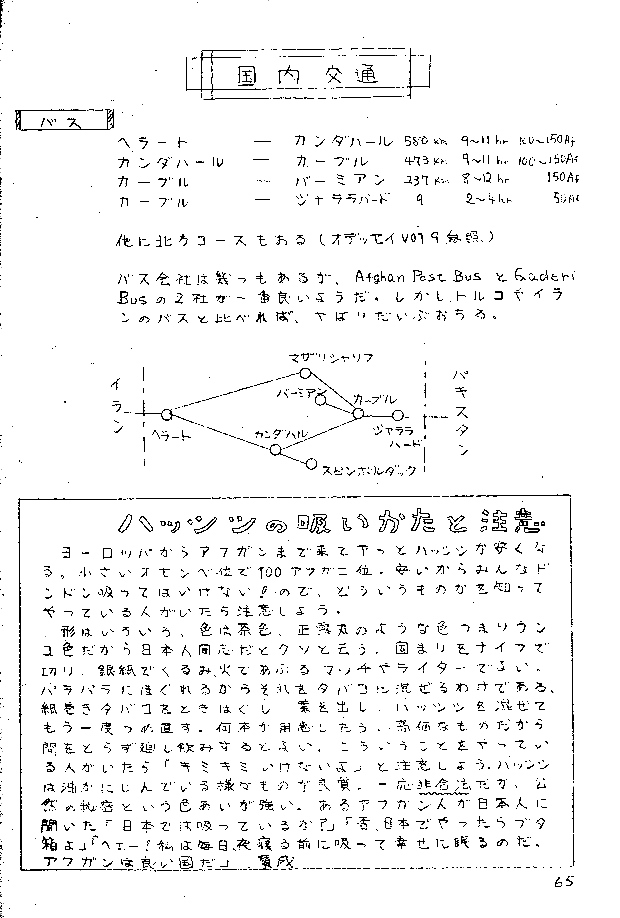 国内交通
バス
ヘラート — カンダハール 580 Km 9~11 hr 100~150Af
カンダハール — カーブル 473 Km 9~11 hr 100~150Af
カーブル — バーミアン 237 Km 8~12 hr 150Af
カーブル — ジャララバード 9 2~4 hr 50Af
他に北方コースもある(オデッセイVol9参照)
バス会社は幾つもあるが、Afghan Post BusとGaderi
Busの2社が一番良いようだ。しかしトルコやイラ
ンのバスと比べれば、やはりだいぶおちる。
マザリシャリフ
イラン
バーミアン
カーブル
パキスタン
ヘラート
カンダハル
ジャララバード
スピンボルダック
ハッシシの吸いかたと注意
ヨーロッパからアフガンまで来てやっとハッシシが安くな
る。小さいオセンベ位で100アフガニ位。安いからみんなド
ンドン吸ってはいけない!ので、どういうものかを知って
やっている人がいたら注意しよう。
形はいろいろ、色は茶色、正露丸のような色つまりウン
コ色だから日本人同志だとクソと云う。固まりをナイフで
切り、銀紙でくるみ火であぶる マッチやライターでよい。
バラバラにほぐれるからそれをタバコに混ぜるわけである。
紙巻きタバコをときほぐし、葉を出し、ハッシシを混ぜて
もう一度つめ直す。何本か用意したら、高価なものだから
間をとらず廻し飲みするとよい。こういうことをやってい
る人がいたら「キミキミいけないよ」と注意しよう。ハッシシ
は油がにじんでいる様なものが良質。一応非合法だが、公
然の秘密という色あいが強い。あるアフガン人が日本人に
聞いた「日本では吸っているか?」「否、日本でやったらブタ
箱よ」「ヘェー!私は毎日、夜寝る前に吸って幸せに眠るのだ。
アフガンは良い国だ」 賛成
65